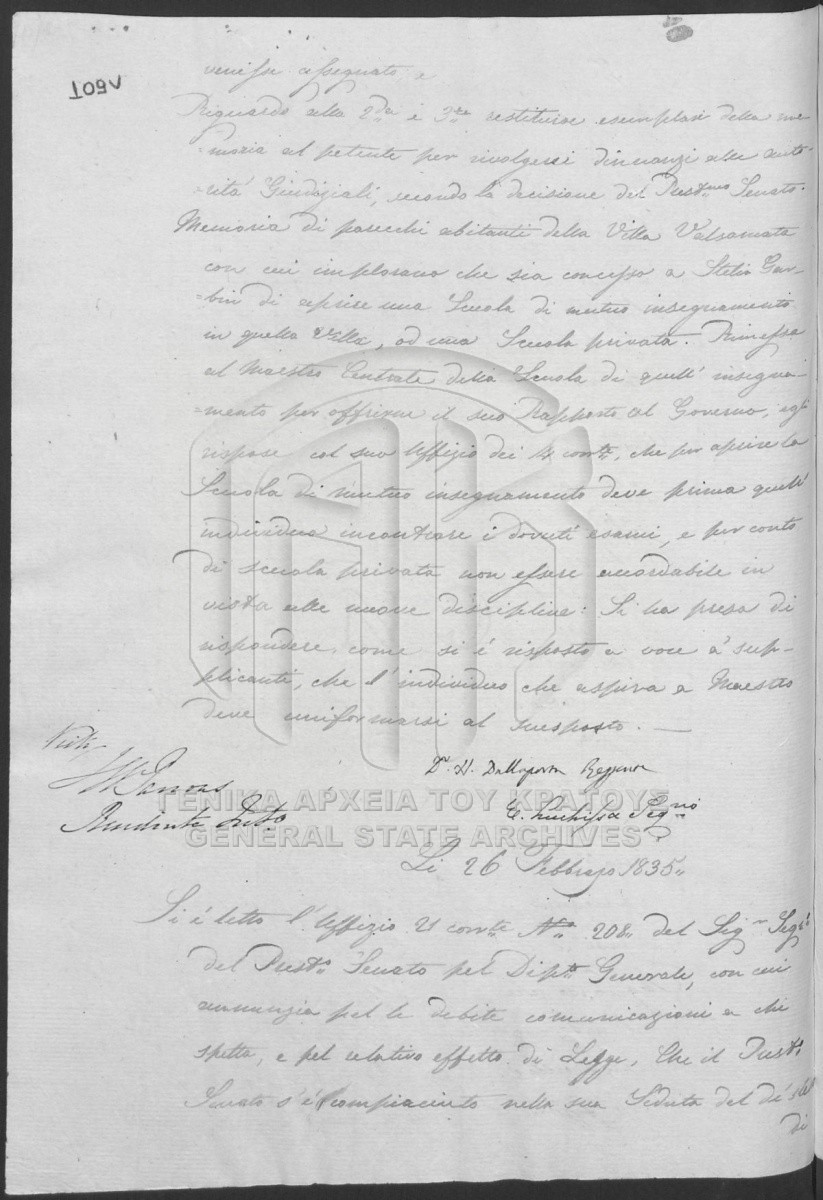 109V
venisse assegnato, e
Riguardo alla 2da e 3za restituire esemplari della me=
=moria al petente per rivolgersi dinnanzi alle auto=
=rità Giudiziali, secondo la decisione del Prestmo Senato.
Memoria di parecchi abitanti della Villa Valsamata
con cui implorano che sia concesso a Stelio Gar=
=bin di aprire una Scuola di mutuo insegnamento
in quella Villa, od una Scuola privata. Rimessa
al Maestro Centrale della Scuola di quell' insegna=
=mento per offrirne il suo Rapporto al Governo, egli
rispose col suo Uffizio dei 4 corrte, che per aprire la
Scuola di mutuo insegnamento deve prima quell'
individuo incontrare i dovuti esami, e per conto
di scuola privata non essere accordabile in
vista alle nuove discipline: Si ha preso di
rispondere, come si è risposto a voce a' sup=
plicanti, che l' individuo che aspira a Maestro
deve uniformarsi al suesposto. —
Dr. Dallaporta Reggente
ΓΕΝΙΚΑ ΑΡΧΕΙΑ ΤΟΥ ΚΡΑΤΟΥΣ
GENERAL STATE ARCHIVES
Li 26 Febbrajo 1835
Si è letto l' Uffizio 21 corrte No 208 del Sigr Segrio
del Presto Senato pel Dipto Generale, con cui
annunzia pel le debite comunicazioni a chi
spetta, e pel relativo effetto di Legge, Che il Presto
Senato s' è compiacciuto nella sua Seduta del dì
di